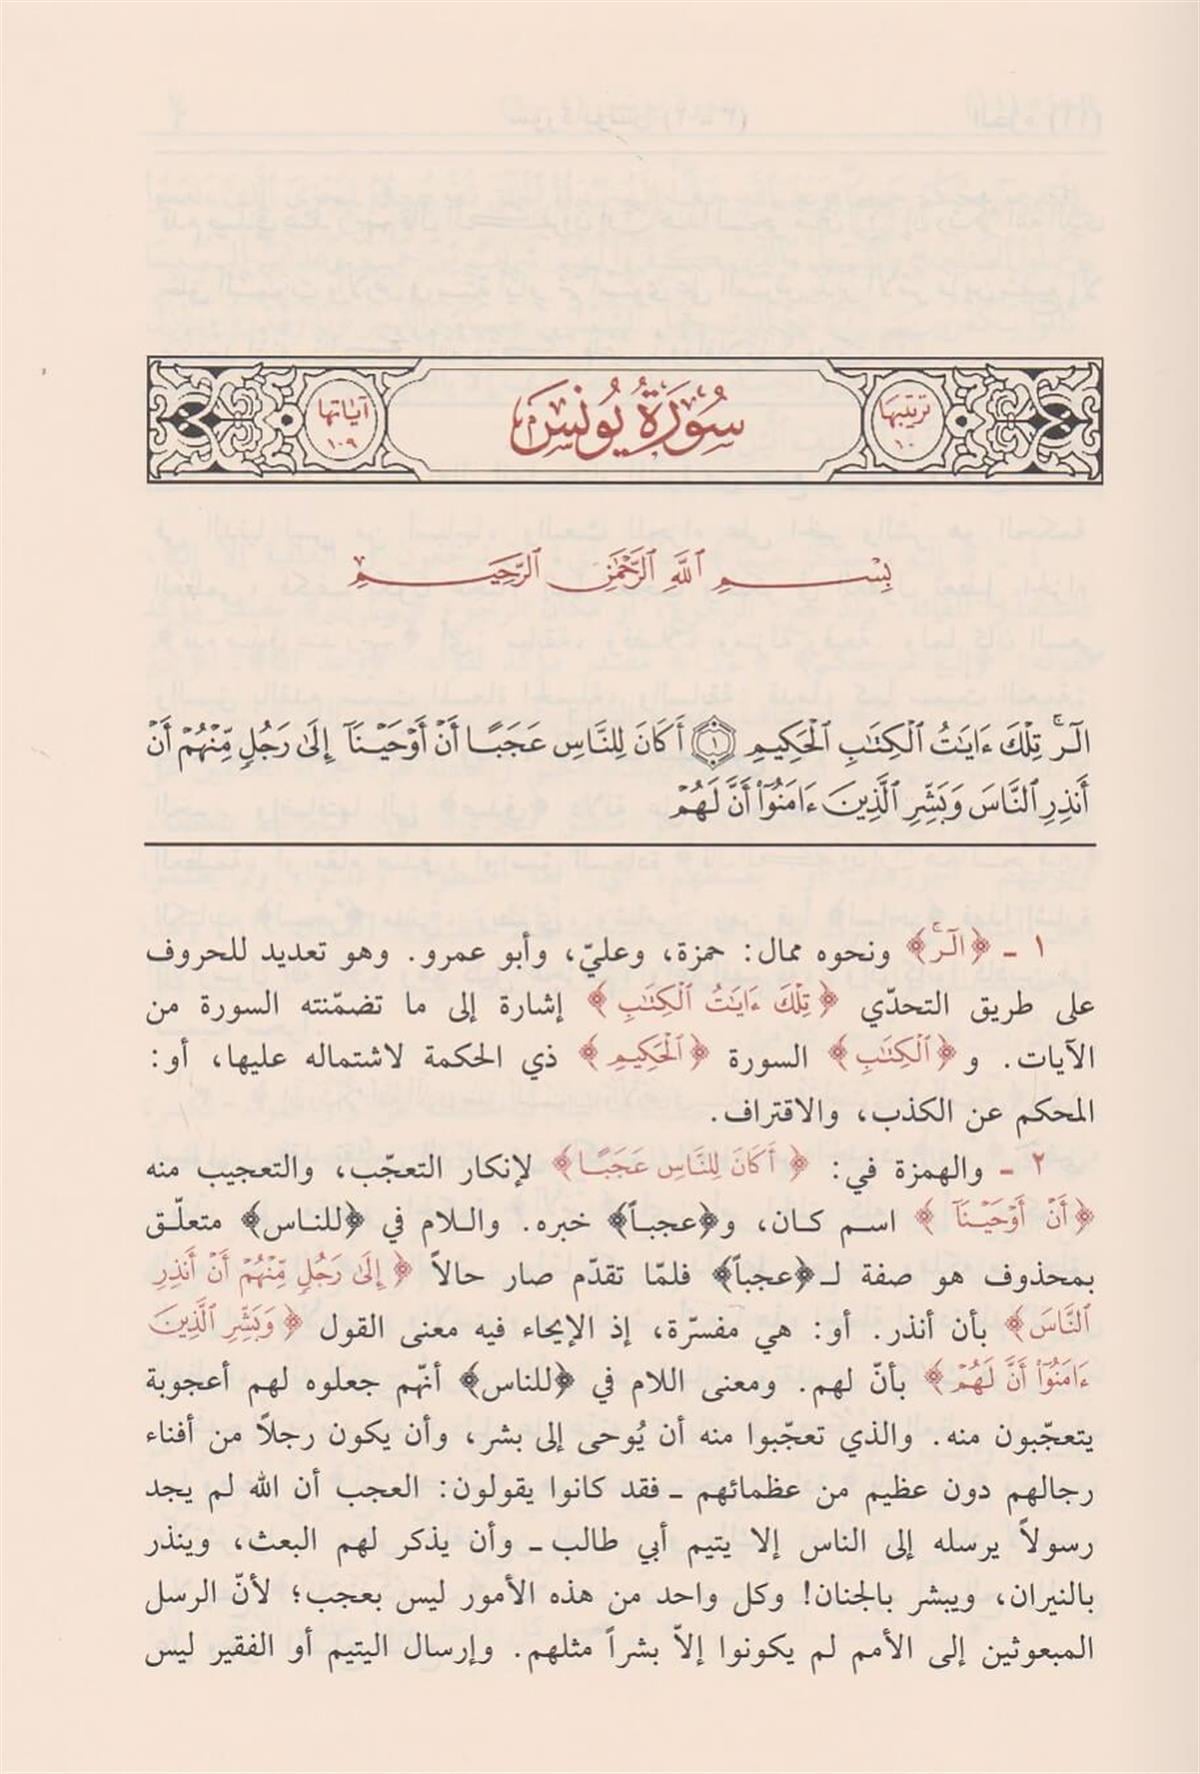 ترتيبها
١٠
سُورَةُ يُونُسَ
آياتها
١٠٩
بِسْمِ ٱللَّهِ ٱلرَّحْمَٰنِ ٱلرَّحِيمِ
الٓرۚ تِلْكَ ءَايَٰتُ ٱلْكِتَٰبِ ٱلْحَكِيمِ ١ أَكَانَ لِلنَّاسِ عَجَبًا أَنْ أَوْحَيْنَآ إِلَىٰ رَجُلٍ مِّنْهُمْ أَنْ
أَنذِرِ ٱلنَّاسَ وَبَشِّرِ ٱلَّذِينَ ءَامَنُوٓا۟ أَنَّ لَهُمْ
١ - ﴿الٓرۚ﴾ ونحوه ممال: حمزة، وعليّ، وأبو عمرو. وهو تعديد للحروف
على طريق التحدّي ﴿تِلْكَ ءَايَٰتُ ٱلْكِتَٰبِ﴾ إشارة إلى ما تضمّنته السورة من
الآيات. و﴿ٱلْكِتَٰبِ﴾ السورة ﴿ٱلْحَكِيمِ﴾ ذي الحكمة لاشتماله عليها، أو:
المحكم عن الكذب، والاقتراف.
٢ - والهمزة في: ﴿أَكَانَ لِلنَّاسِ عَجَبًا﴾ لإنكار التعجّب، والتعجيب منه
﴿أَنْ أَوْحَيْنَآ﴾ اسم كان، و﴿عجباً﴾ خبره. واللام في ﴿للناس﴾ متعلّق
بمحذوف هو صفة لـ﴿عجباً﴾ فلمّا تقدّم صار حالاً ﴿إِلَىٰ رَجُلٍ مِّنْهُمْ أَنْ أَنذِرِ
ٱلنَّاسَ﴾ بأن أنذر. أو: هي مفسّرة، إذ الإيحاء فيه معنى القول ﴿وَبَشِّرِ ٱلَّذِينَ
ءَامَنُوٓا۟ أَنَّ لَهُمْ﴾ بأنّ لهم. ومعنى اللام في ﴿للناس﴾ أنّهم جعلوه لهم أعجوبة
يتعجّبون منه. والذي تعجّبوا منه أن يُوحى إلى بشر، وأن يكون رجلاً من أفناء
رجالهم دون عظيم من عظمائهم - فقد كانوا يقولون: العجب أن الله لم يجد
رسولاً يرسله إلى الناس إلا يتيم أبي طالب - وأن يذكر لهم البعث، وينذر
بالنيران، ويبشر بالجنان! وكل واحد من هذه الأمور ليس بعجب؛ لأنّ الرسل
المبعوثين إلى الأمم لم يكونوا إلاّ بشراً مثلهم. وإرسال اليتيم أو الفقير ليس